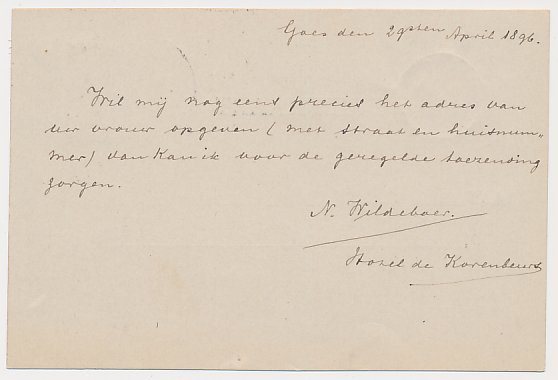 Goes den 29sten April 1896.
Wil mij nog eens precies het adres van
uw vrouw opgeven (met straat en huisnum„
mer) dan kan ik voor de geregelde toezending
zorgen.
N. Wildeboer.
Hotel de Korenbeurs